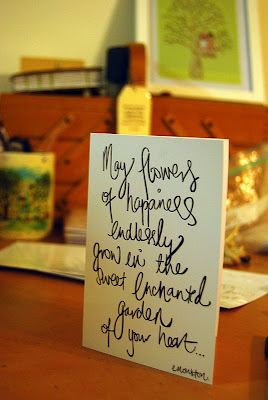 May flowers
of happiness
endlessly
grow in the
sweet Enchanted
garden
of your heart...